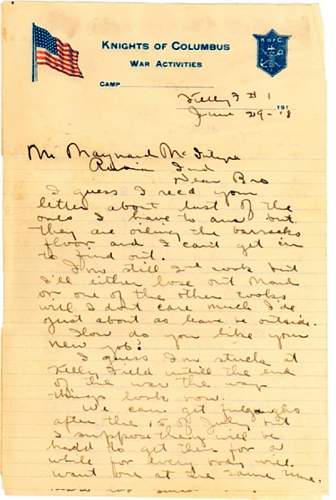 KNIGHTS OF COLUMBUS
WAR ACTIVITIES
CAMP
K OF C
Kelly F # 1
191
June 29 - 18
Mr Maynard McIntyre
Ind
Dear Bro
I guess I recd your
letter about last of the
ones I have to ans but
they are oiling the barracks
floor and I can't get in
to find out.
I'm still I work but
I'll either lose out
or one of the other
will I don't care much I'de
just about as leave be outside.
How do you like your
new job?
I guess I'm stuck at
Kelly Field untill the end
of the war the way
things look now.
We can get furloughs
after the 15 of July but
I suppose they will be
hard to get this for a
while for every ones will
want one at the same time.